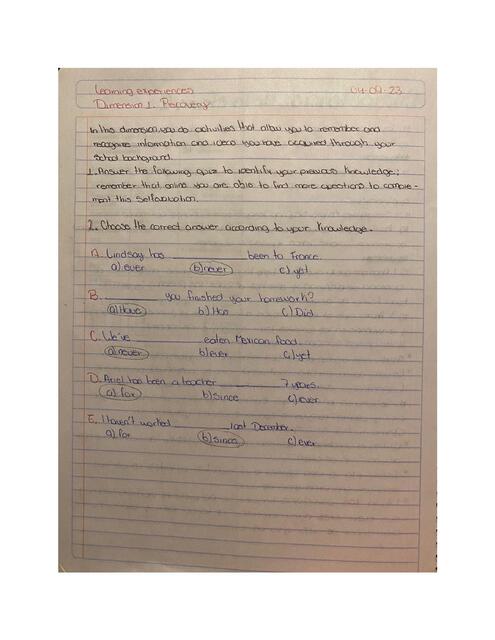 Learning experiences 04-09-23
Dimension 1. Recovery
In this dimension, you do activities that allow you to remember and
recognize information and ideas you have acquired through your
school background.
1. Answer the following quiz to identify your previous knowledge;
remember that online you are able to find more questions to comple-
ment this selfevaluation.
2. Choose the correct answer according to your knowledge.
A. Lindsay has __________ been to France.
a) ever b) never c) yet
B. __________ you finished your homework?
a) Have b) Has c) Did
C. We've __________ eaten Mexican food.
a) never b) ever c) yet
D. Ariel has been a teacher __________ 7 years.
a) for b) since c) ever
E. I haven't worked __________ last December.
a) for b) since c) ever